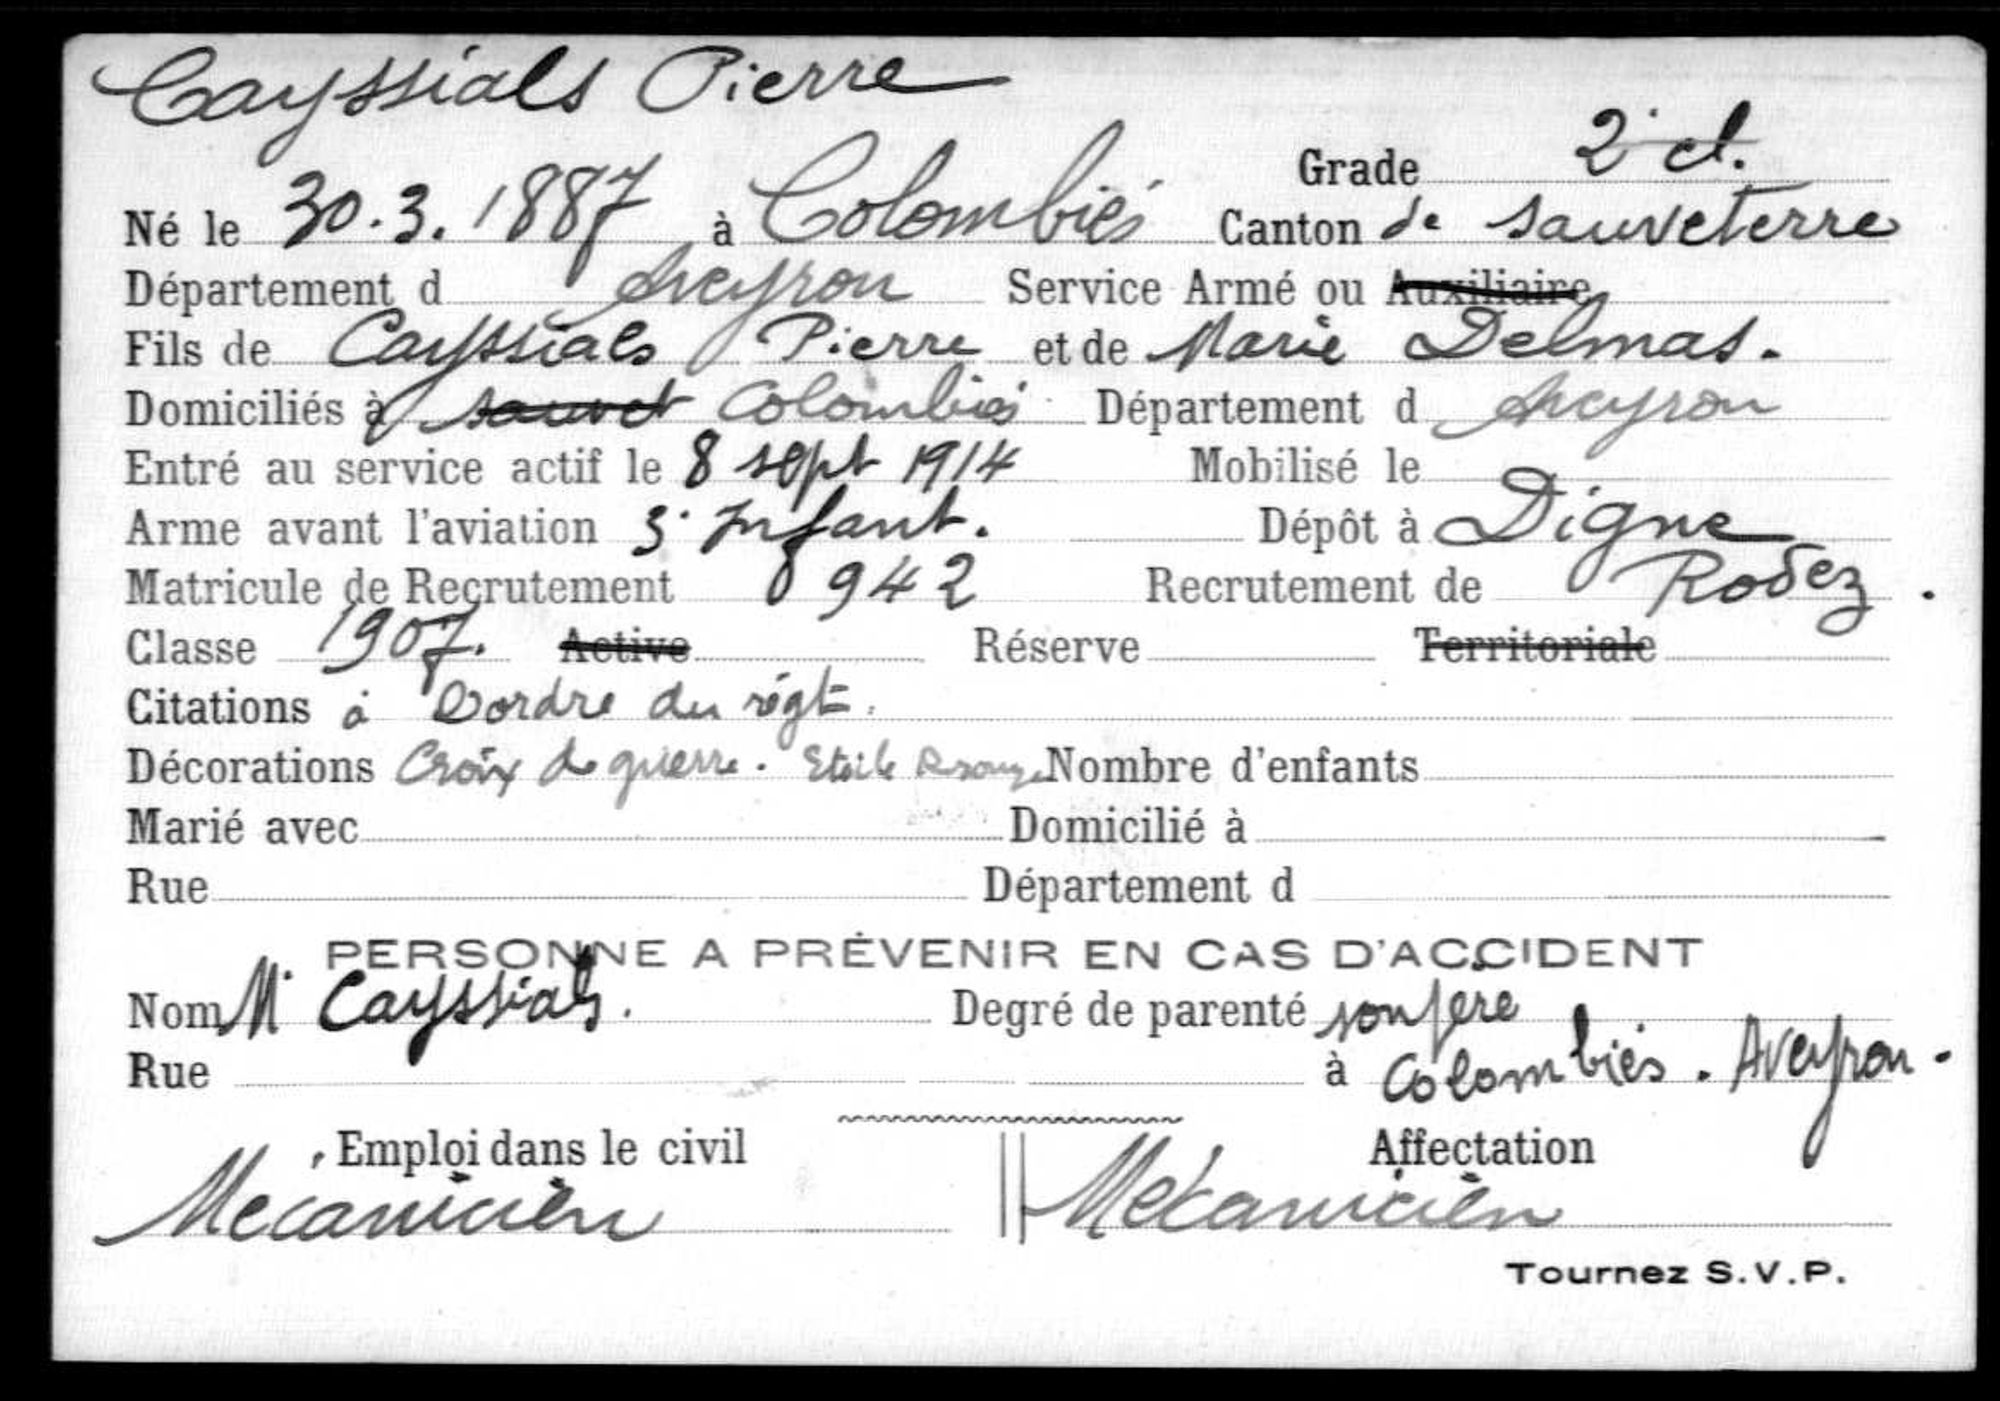 Cayssials Pierre
Grade 2e cl.
Né le 30.3.1887 à Colombiés Canton de Sauveterre
Département d Aveyron Service Armé ou Auxiliaire
Fils de Cayssials Pierre et de Marie Delmas.
Domiciliés à sauvet Colombiés Département d Aveyron
Entré au service actif le 8 sept 1914 Mobilisé le
Arme avant l'aviation 3e Infant. Dépôt à Digne
Matricule de Recrutement 942 Recrutement de Rodez.
Classe 1907. Active Réserve Territoriale
Citations à L'ordre du régt.
Décorations Croix de guerre. Etoile Nombre d'enfants
Marié avec Domicilié à
Rue Département d
PERSONNE A PRÉVENIR EN CAS D'ACCIDENT
Nom Mr Cayssials. Degré de parenté son père
Rue à Colombiés. Aveyron.
Emploi dans le civil Affectation
Mecanicien Mécanicien
Tournez S.V.P.